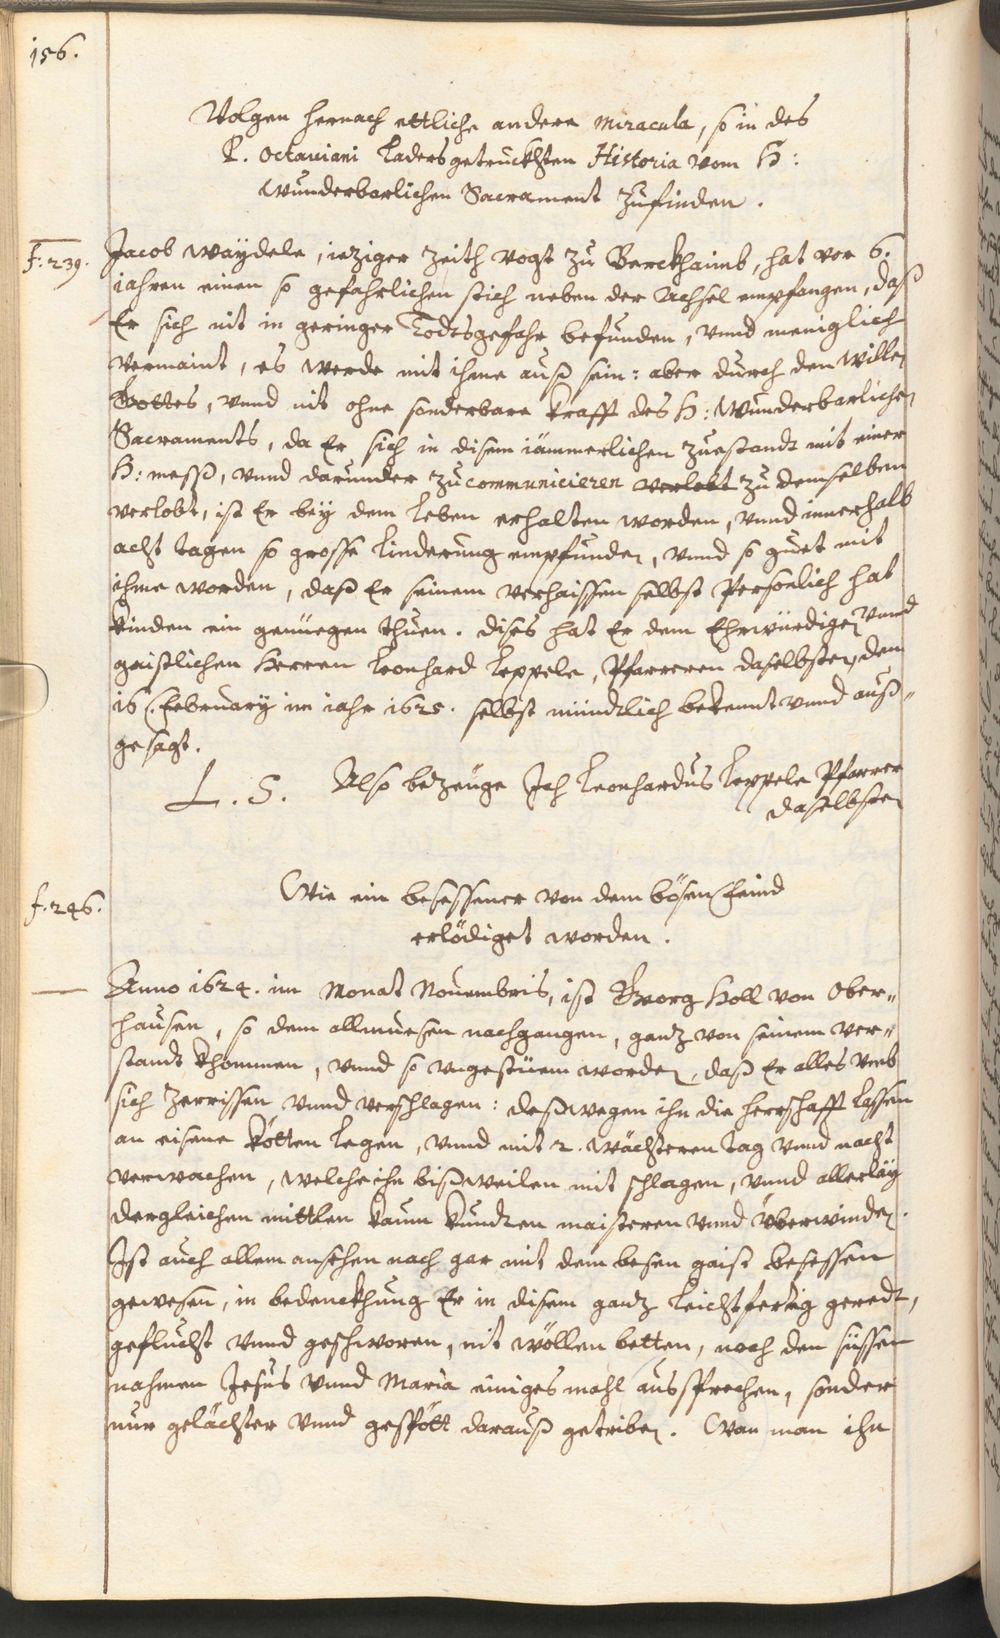 156.
Volgen hernach ettliche andere Miracula, so in des
P. Octauiani Laders getruckhten Historia vom H:
wunderbarlichen Sacrament zufinden.
f: 239.
Jacob Waÿdele, ieziger Zeith Vogt zu Berckhaimb, hat vor 6.
iahren einen so gefahrlichen stich neben der Achsel empfangen, daß
Er sich nit in geringer Todtsgefahr befunden, vnnd meniglich
vermaint, es werde mit ihme auß sein: aber durch den willen
Gottes, vnnd nit ohne sonderbare krafft des H: Wunderbarlichen
Sacraments, da Er sich in disem iämmerlichen zuestandt mit einer
H: mess, vnnd darunder zu communicieren verlobt zu demselben
verlobt, ist Er beÿ dem leben erhalten worden, vnnd innerhalb
acht tagen so grosse linderung empfunden, vnnd so guet mit
ihme worden, daß Er seinem verhaissen selbst Persönlich hat
künden ein genüegen thuen. dises hat Er dem Ehrwürdigen vnnd
gaistlichen Herren Leonhard Leppele, Pfarreren daselbsten, den
16. February im iahr 1625. selbst mündtlich bekennt vnnd auß-
gesagt.
L. S. Also bezeüge Ich Leonhardus Leppele Pfarrer
daselbsten
f. 246.
Wie ein besessener von dem bösen feind
erlödiget worden.
Anno 1624. im Monat Nouembris, ist Georg Holl von Ober-
hausen, so dem allmuesen nachgangen, gantz von seinem ver-
standt khommen, vnnd so vngestüem worden, daß Er alles vmb
sich zerrissen vnnd verschlagen: deßwegen ihn die herrschafft lassen
an eisene kötten legen, vnnd mit 2. wächteren tag vnnd nacht
verwachen, welche ihn bißweilen mit schlagen, vnnd allerlaÿ
dergleichen mittlen kaum kundten maisteren vnnd überwinden.
Ist auch allem ansehen nach gar mit dem bösen gaist besessen
gewesen, in bedenckhung Er in disem gantz leichtfertig geredt,
geflucht vnnd geschworen, nit wöllen betten, noch den süssen
nahmen Jesus vnnd Maria einiges mahl aussprechen, sonder
nur gelächter vnnd gespött darauß getriben. Wan man ihn